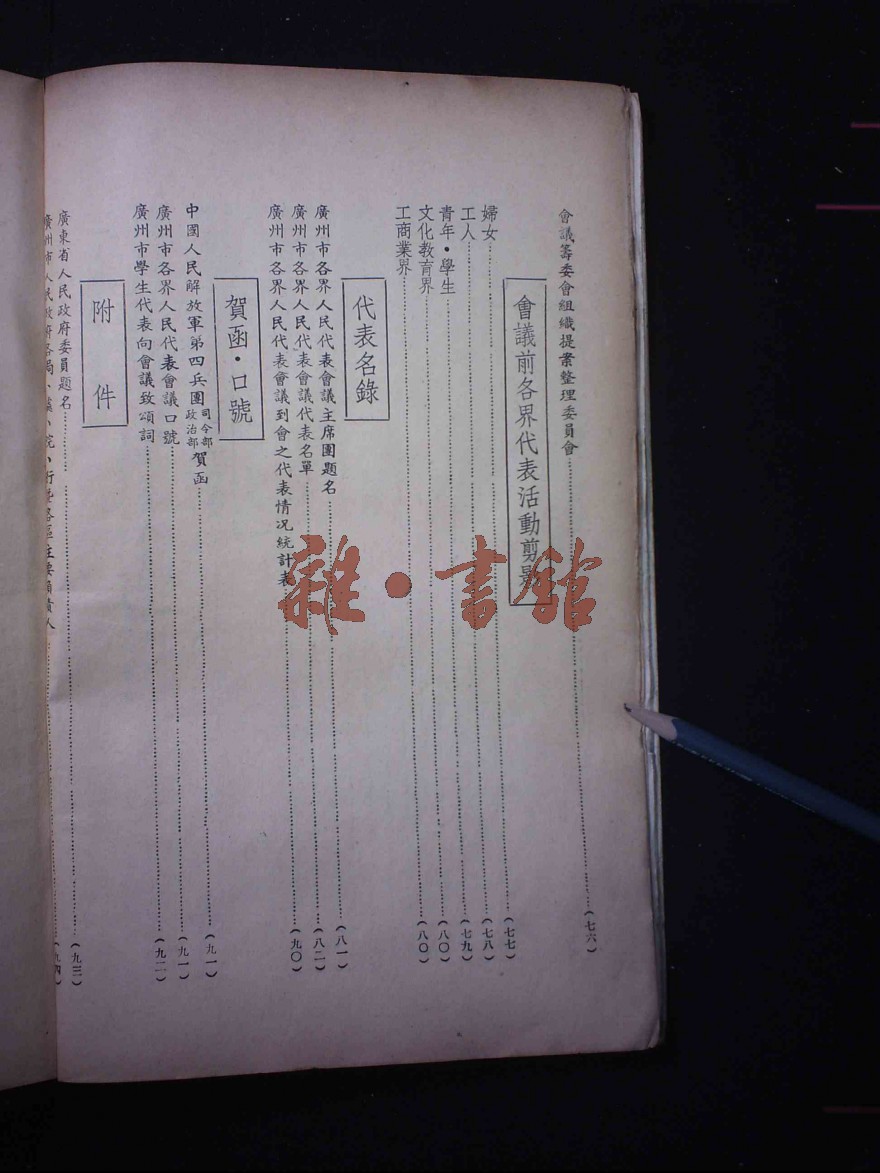 會議籌委會組織提案整理委員會……(七六)
會議前各界代表活動剪影
婦女……(七七)
工人……(七八)
青年・學生……(七九)
文化教育界……(八〇)
工商業界……(八〇)
代表名錄
廣州市各界人民代表會議主席團題名……(八一)
廣州市各界人民代表會議代表名單……(八二)
廣州市各界人民代表會議到會之代表情況統計表……(九〇)
賀函・口號
中國人民解放軍第四兵團司令部政治部賀函……(九一)
廣州市各界人民代表會議口號……(九一)
廣州市學生代表向會議致頌詞……(九二)
附件
廣東省人民政府委員題名……(九三)
廣州市人民政府各局、處、院、行暨各區主要負責人……(九四)
雜・書館